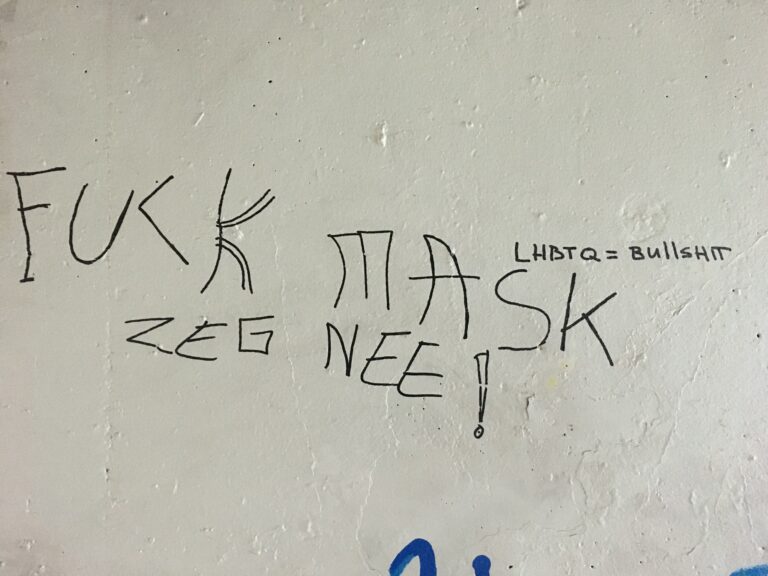 FUCK MASK
LHBTQ = BullSHIT
ZEG NEE!